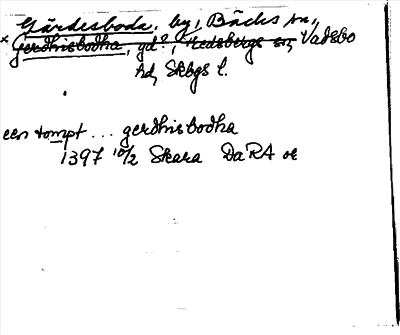 Gärdesboda, by, Bäcks sn,
× Gerdhisbodha, gd?, Hedsbergs sn, Vadsbo
hd, Skbgs l.
een tompt ... gerdhisbodha
1397 10/2 Skara DaRA or